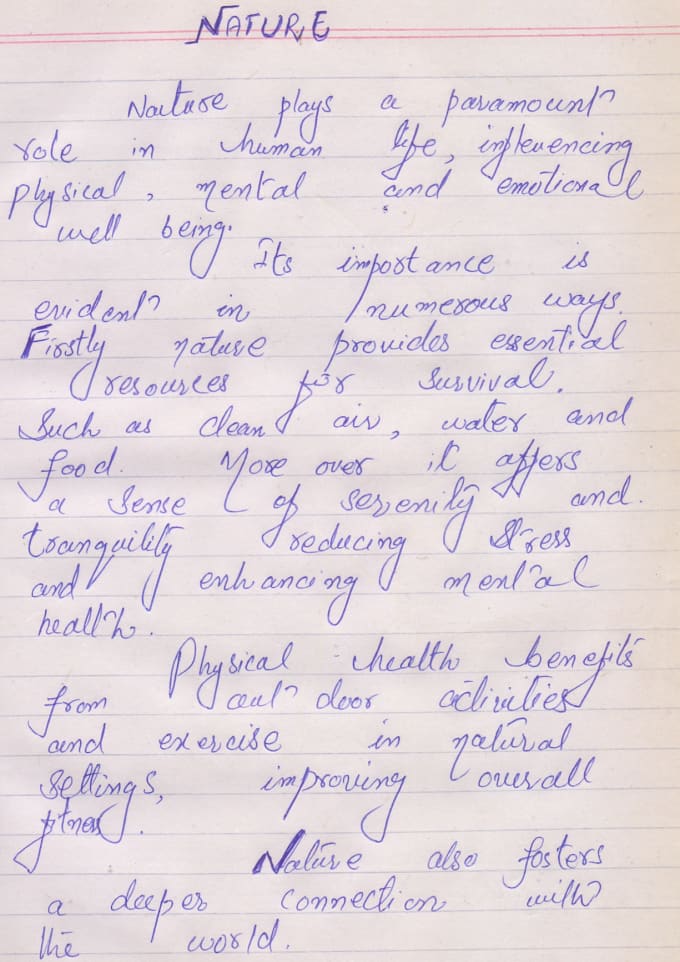 NATURE
Nature plays a paramount
role in human life, influencing
physical, mental and emotional
well being.
Its importance is
evident in numerous ways.
Firstly nature provides essential
resources for survival.
Such as clean air, water and
food. More over it offers
a sense of serenity and.
tranquility reducing stress
and enhancing mental
health.
Physical health benefits
from out door activities
and exercise in natural
settings, improving overall
fitness.
Nature also fosters
a deeper connection with
the world.